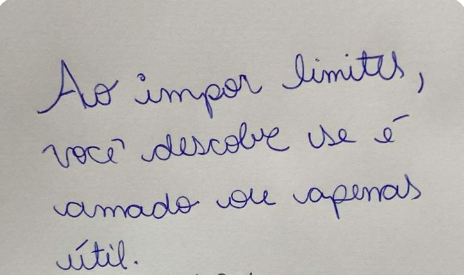 Ao impor limites,
você descobre se é
amado ou apenas
útil.